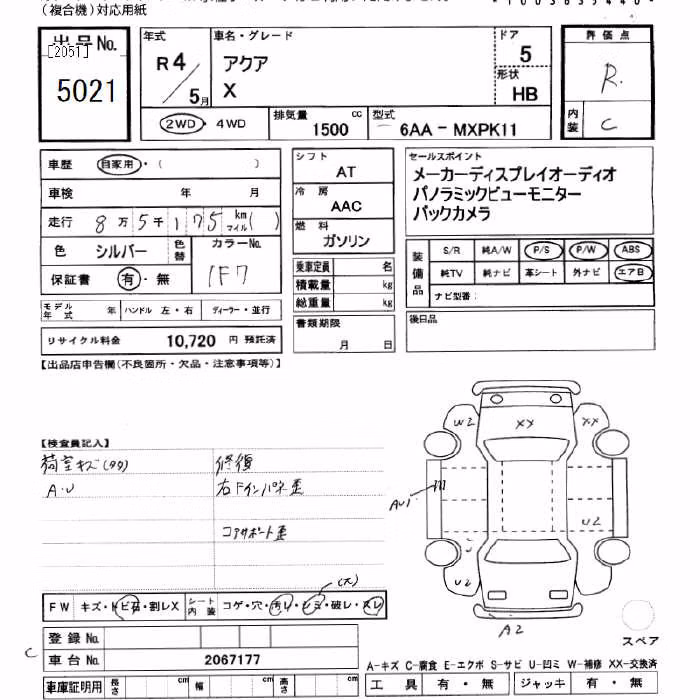 (複合機)対応用紙
出品No.
[2051]
5021
年式
R4/5月
車名・グレード
アクア
X
ドア
5
形状
HB
評価点
R
内装
C
2WD・4WD
排気量
1500 cc
型式
6AA-MXPK11
車歴 自家用・( )
車検 年 月
走行 8万5千175 km マイル( )
色 シルバー 色替 カラーNo. 1F7
保証書 有・無
モデル年式 年 ハンドル 左・右 ディーラー・並行
リサイクル料金 10,720 円 預託済
シフト
AT
冷房
AAC
燃料
ガソリン
乗車定員 名
積載量 kg
総重量 kg
書類期限
月 日
セールスポイント
メーカーディスプレイオーディオ
パノラミックビューモニター
バックカメラ
装備品
S/R 純A/W P/S P/W ABS
純TV 純ナビ 革シート 外ナビ エアB
ナビ型番:
後日品
【出品店申告欄(不良箇所・欠品・注意事項等)】
【検査員記入】
荷室キズ(タタ)
A・U
修復
右Fインパネ歪
コアサポート歪
W2 XX XX
AU1
U2
U
U2
A2
スペア
FW キズ・トビ石・割レX シート内装 コゲ・穴・汚レ・シミ・破レ・スレ
(大)
登録No.
C
車台No. 2067177
車庫証明用 長さ cm 幅 cm 高さ cm
A-キズ C-腐食 E-エクボ S-サビ U-凹ミ W-補修 XX-交換済
工具 有・無 ジャッキ 有・無